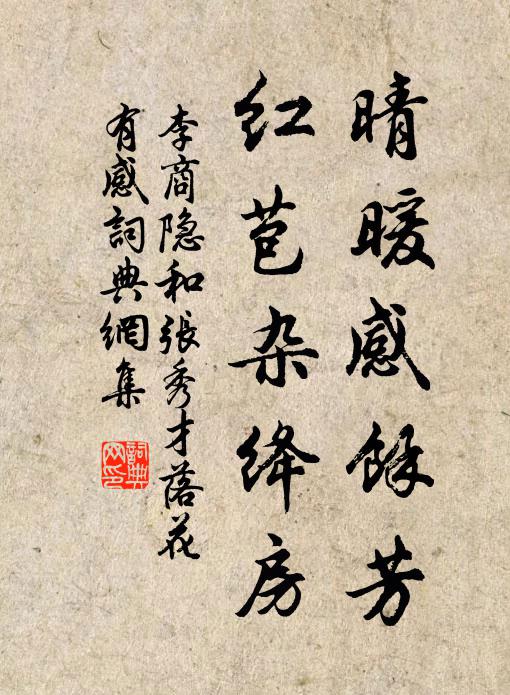 晴暖感餘芳
红苞杂绛房
李商隐和張秀才落花
有感詞典網集
詞典網印